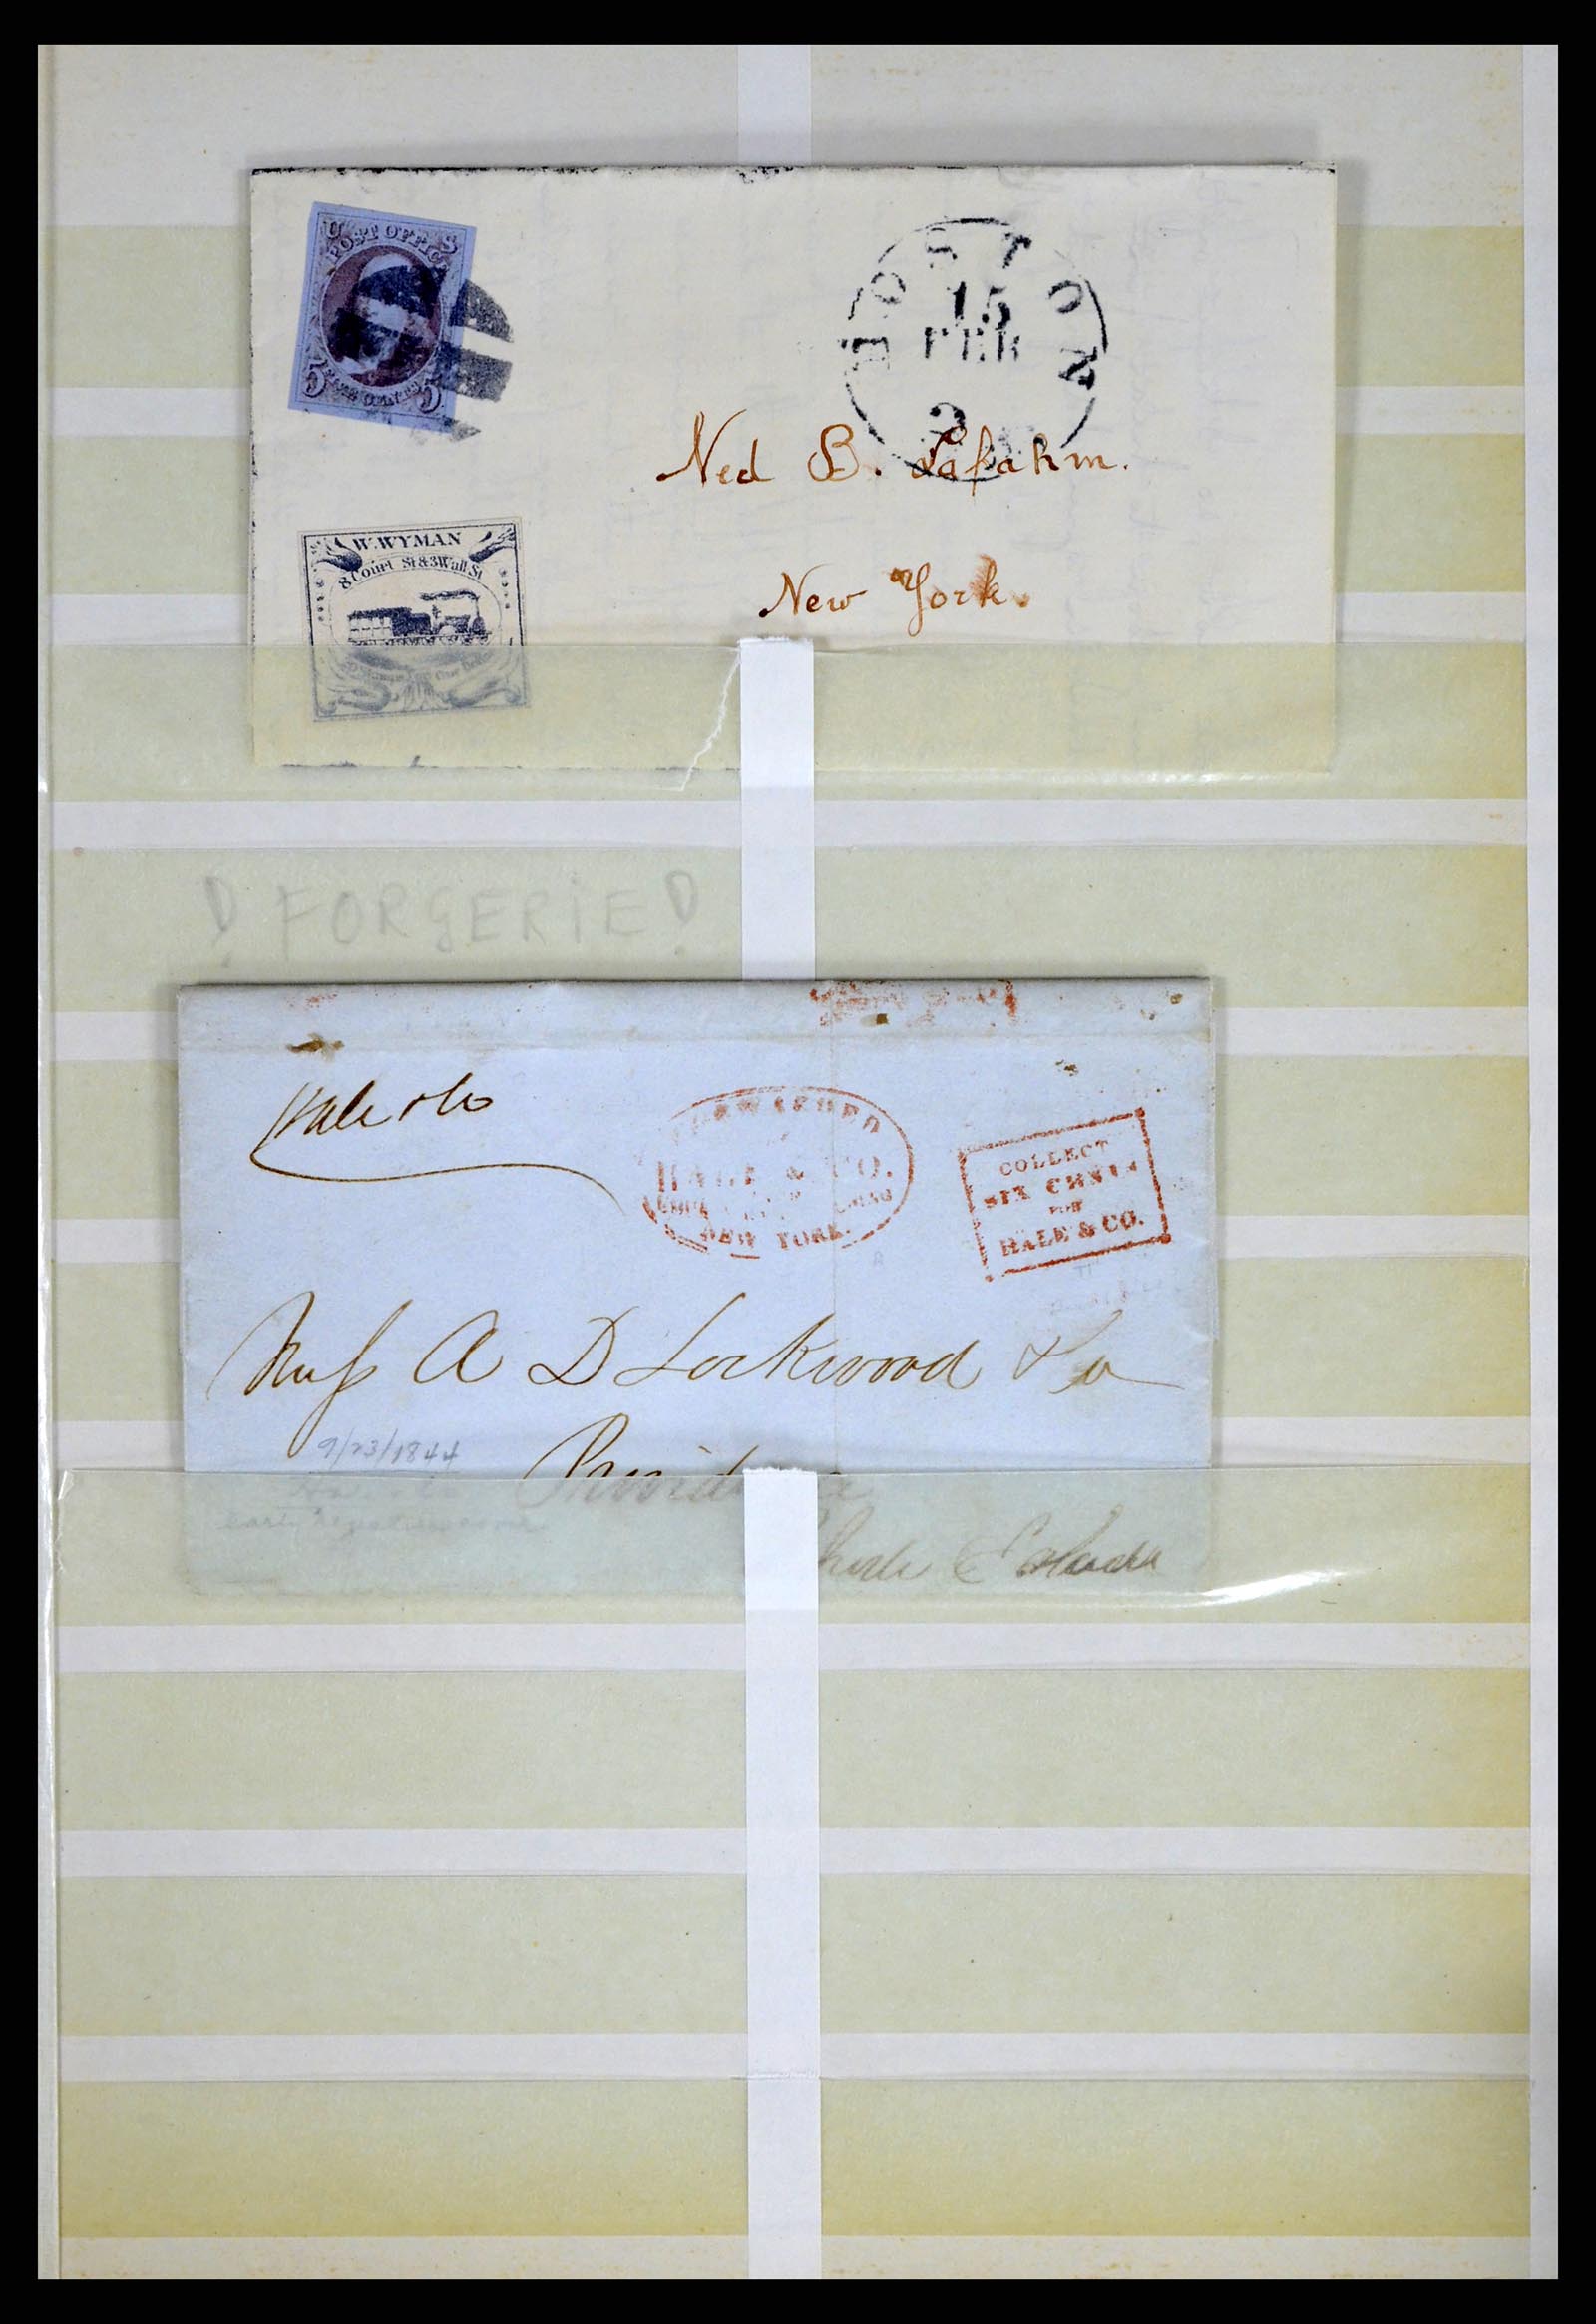 U S
POST OFFICE
5 FIVE CENTS 5
BOSTON
15
FEB
Ned B.
New York.
W. WYMAN
8 Court St & 3 Wall St
! FORGERIE !
Hale & Co
FORWARDED
HALE & CO.
NEW YORK.
COLLECT
SIX CENTS
FOR
HALE & CO.
Mess A D Lockwood & Co
9/23/1844
Providence
Rhode Island